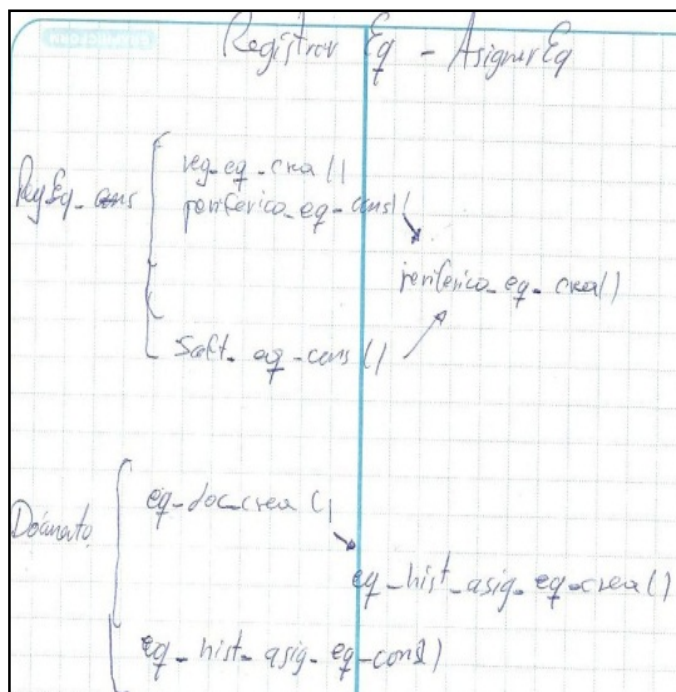 Registrar Eq - AsignarEq
reg_eq_crea()
RegEq_cons
periferico_eq_cons()
periferico_eq_crea()
Soft_eq_cons()
eq_doc_crea()
Documento
eq_hist_asig_eq_crea()
eq_hist_asig_eq_cons()